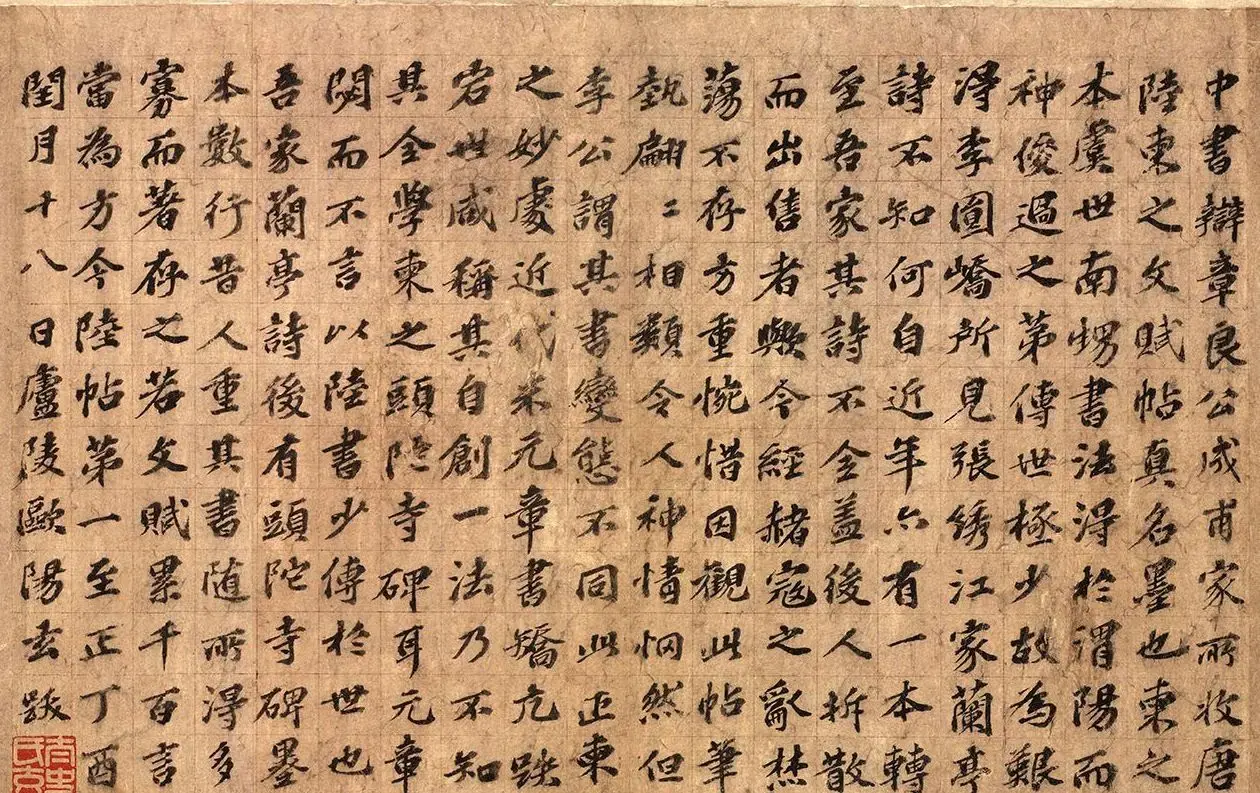 中書辯章良公成甫家所收唐
陸柬之文賦帖真名墨也柬之
本虞世南甥書法得於渭陽而
神俊過之第傳世極少故為艱
得李圖嶠所見張綉江家蘭亭
詩不知何自近年亦有一本轉
至吾家其詩不全盖後人拆散
而出售者歟今經赭寇之亂焚
蕩不存方重惋惜因觀此帖筆
埶翩〻相類令人神情惘然但
李公謂其書變態不同此正柬
之妙處近代米元章書矯亢跌
宕世咸稱其自創一法乃不知
其全學柬之頭陀寺碑耳元章
閟而不言以陸書少傳於世也
吾家蘭亭詩後有頭陀寺碑墨
本數行昔人重其書随所得多
寡而著存之若文賦累千百言
當為方今陸帖第一至正丁酉
閏月十八日廬陵歐陽玄跋